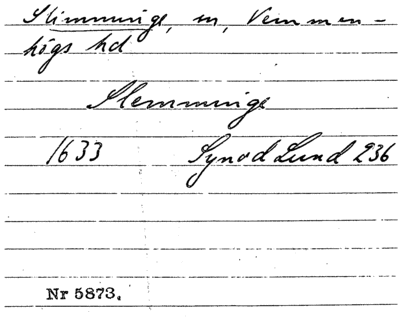 Slimminge, sn, Vemmen-
högs hd
Slemminge
1633 Synod Lund 236
Nr 5873.